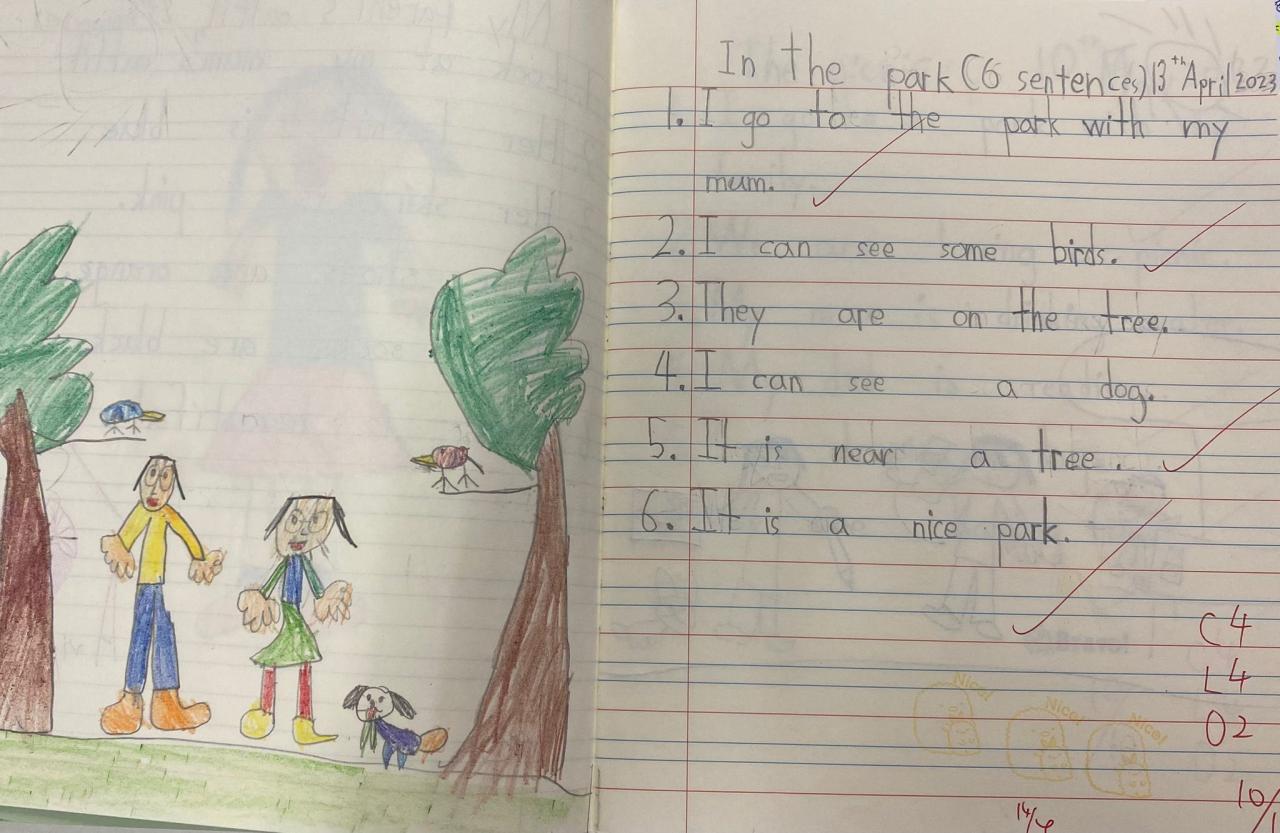 In the park (6 sentences) 13th April 2023
1. I go to the park with my
mum.
2. I can see some birds.
3. They are on the tree.
4. I can see a dog.
5. It is near a tree.
6. It is a nice park.
C4
L4
O2
Nice!
Nice!
Nice!
10/1
14/4